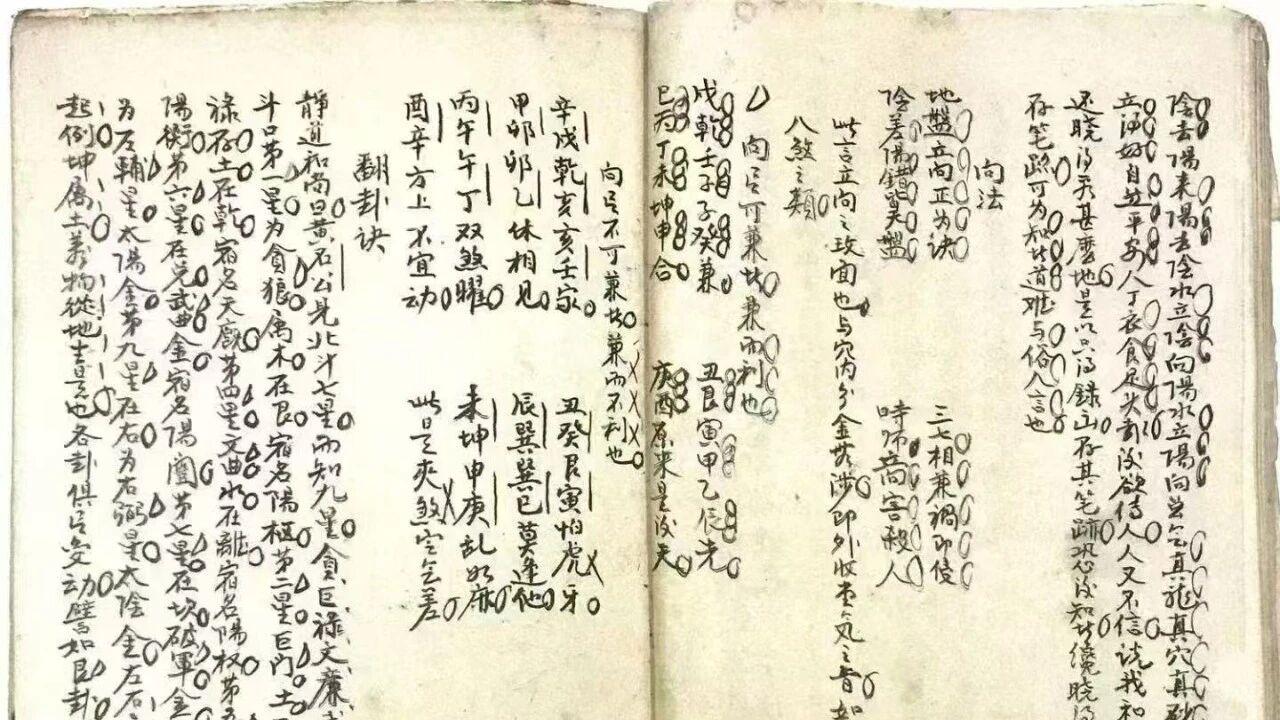 陰去陽来陽去陰水立陰向陽水立陽向並乞真龍真穴真砂
立得好自然平安人丁衣食足頭卦没欲傳人人又不信說我和
还晓得听甚麽地是以只得録出存其笔跡恐没知此纔晓得
存笔跡可为知此道难与俗人言也
向法
地盤立向正为诀 三七相兼調即侵
陰差陽錯買盤 時师啇害殺人
此言立向之玫面也与穴内分金萛涉即外收堂气之音如
八煞之類
向㠯可兼此兼而利也
戊乾壬子子癸兼 丑艮寅甲乙辰光
巳丙丁未坤申合 庚酉原来是没夫
向㠯不可兼此兼而不利也
辛戌乾亥亥壬家 丑癸艮寅怕虎牙
甲卯卯乙休相見 辰巽巽巳莫逢他
丙午午丁双煞曜 未坤申庚乱如麻
酉辛方上不宜动 此是夾煞空乞差
翻卦诀
静道和尚曰黄石公見北斗七星而知九星貪巨禄文廉
斗口第一星为貪狼属木在艮宿名陽樞第二星巨门土
禄存土在乾宿名天璣第四星文曲水在離宿名陽权第五
陽衡第六星在兑武曲金宿名陽闓第七星在坎破軍金
为左輔星太陽金第九星在右为右弼星太陰金左右
起例坤属土萬物從地生是也各卦俱㠯变动譬如艮卦